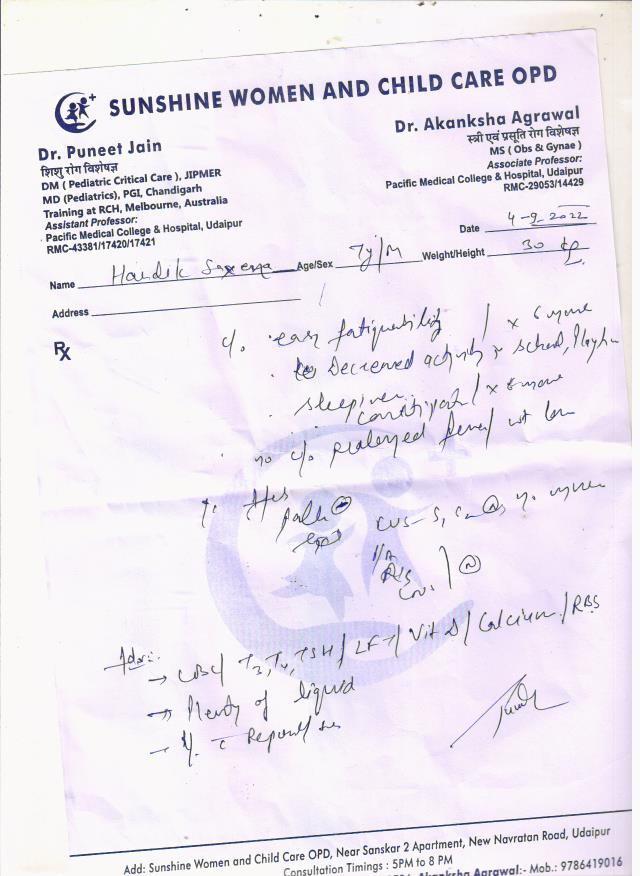 SUNSHINE WOMEN AND CHILD CARE OPD
Dr. Puneet Jain
शिशु रोग विशेषज्ञ
DM ( Pediatric Critical Care ), JIPMER
MD (Pediatrics), PGI, Chandigarh
Training at RCH, Melbourne, Australia
Assistant Professor:
Pacific Medical College & Hospital, Udaipur
RMC-43381/17420/17421
Dr. Akanksha Agrawal
स्त्री एवं प्रसूति रोग विशेषज्ञ
MS (Obs & Gynae )
Associate Professor:
Pacific Medical College & Hospital, Udaipur
RMC-29053/14429
Date 4-9-2022
Name Hardik Saxena Age/Sex 7y/M Weight/Height 30
Address
Rx
c/o easy fatiguability / x 6
Decreased activity school,
x
no c/o prolonged fever / wt loss
CVS- S1
P/A
R/S
CNS (N)
Adv:-
→ CBC/ T3, T4, TSH / LFT / Vit D / Calcium / RBS
→ Plenty of liquid
→ Reports
Add: Sunshine Women and Child Care OPD, Near Sanskar 2 Apartment, New Navratan Road, Udaipur
Consultation Timings : 5PM to 8 PM
Akanksha Agrawal:- Mob.: 9786419016